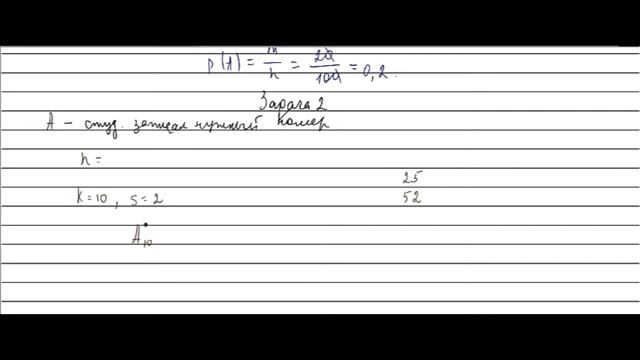 P(A) = m/n = 20/100 = 0,2.
Задача 2
A – студ. записал нужный номер
n =
25
k=10, s=2 52
A₁₀